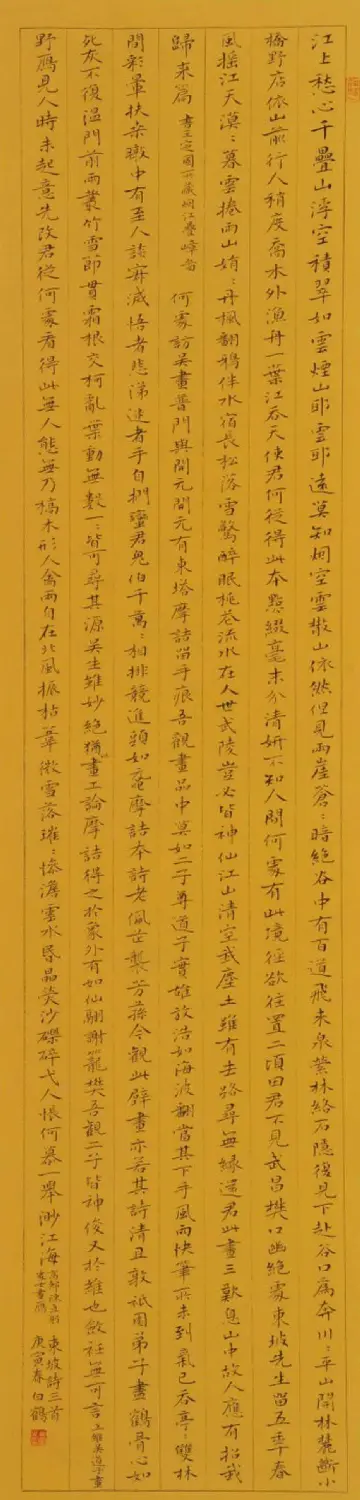 江上愁心千疊山浮空積翠如雲煙山耶雲耶遠莫知烟空雲散山依然但見兩崖蒼〻暗絶谷中有百道飛來泉縈林絡石隱復見下赴谷口為奔川〻平山開林麓斷小
橋野店依山前行人稍度喬木外漁舟一葉江吞天使君何從得此本點綴毫末分清妍不知人間何處有此境徑欲往置二頃田君不見武昌樊口幽絶處東坡先生留五年春
風摇江天漠〻暮雲捲雨山娟〻丹楓翻鴉伴水宿長松落雪驚醉眠桃花流水在人世武陵豈必皆神仙江山清空我塵土雖有去路尋無緣還君此畫三歎息山中故人應有招我
歸來篇 書王定國所藏烟江疊嶂圖 何處訪吳畫普門與開元開元有東塔摩詰留手痕吾觀畫品中莫如二子尊道子實雄放浩如海波翻當其下手風雨快筆所未到氣已吞亭〻雙林
間彩暈扶桑暾中有至人談寂滅悟者悲涕迷者手自捫蠻君鬼伯千萬〻相排競進頭如黿摩詰本詩老佩芷襲芳蓀今觀此壁畫亦若其詩清且敦祇園弟子盡鶴骨心如
死灰不復温門前兩叢竹雪節貫霜根交柯亂葉動無數一〻皆可尋其源吳生雖妙絶猶以畫工論摩詰得之於象外有如仙翮謝籠樊吾觀二子皆神俊又於維也斂衽無可言 王維吳道子畫
野雁見人時未起意先改君從何處看得此無人態無乃槁木形人禽兩自在北風振枯葦微雪落璀〻慘澹雲水昏晶熒沙礫碎弋人悵何慕一舉渺江海 高郵陳直躬處士畫雁 東坡詩三首
庚寅春 白鶴